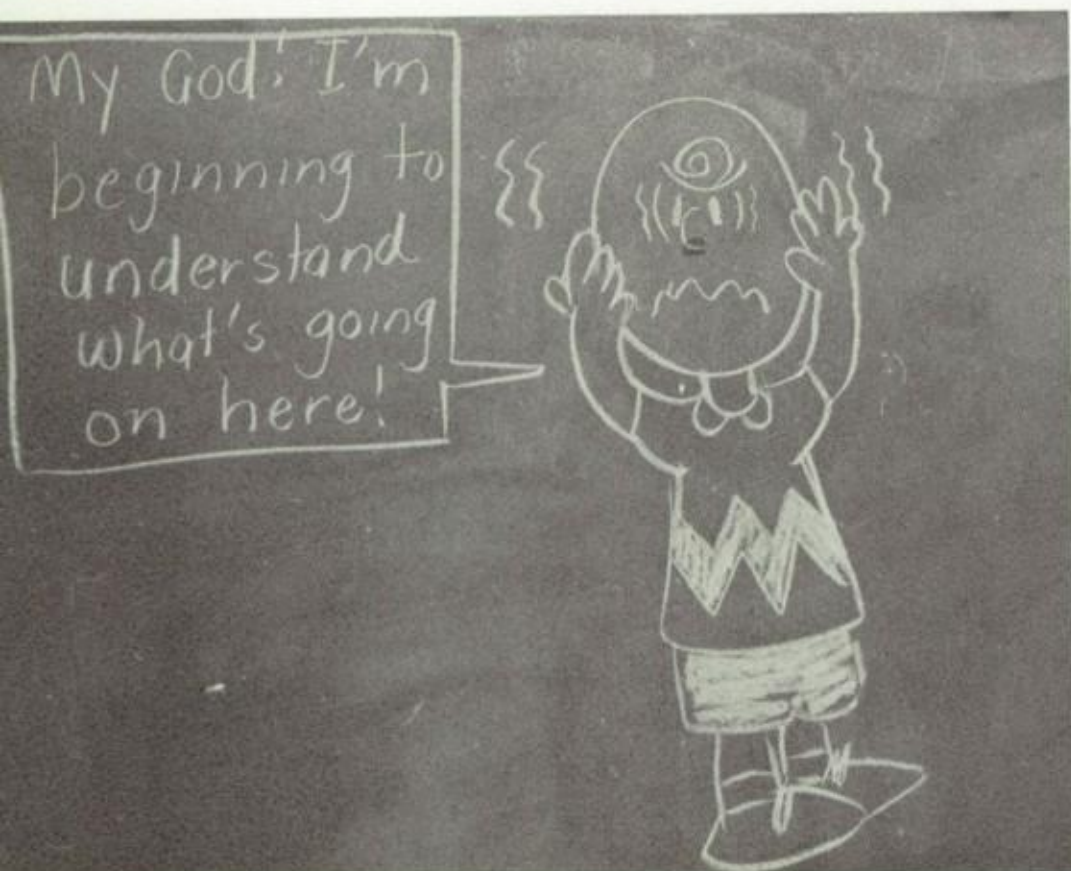 My God! I'm
beginning to
understand
what's going
on here!